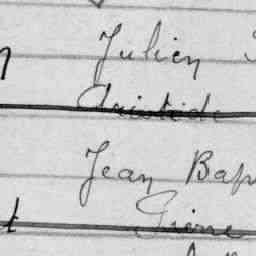 Julien
Aristide
Jean Bap
Pierre